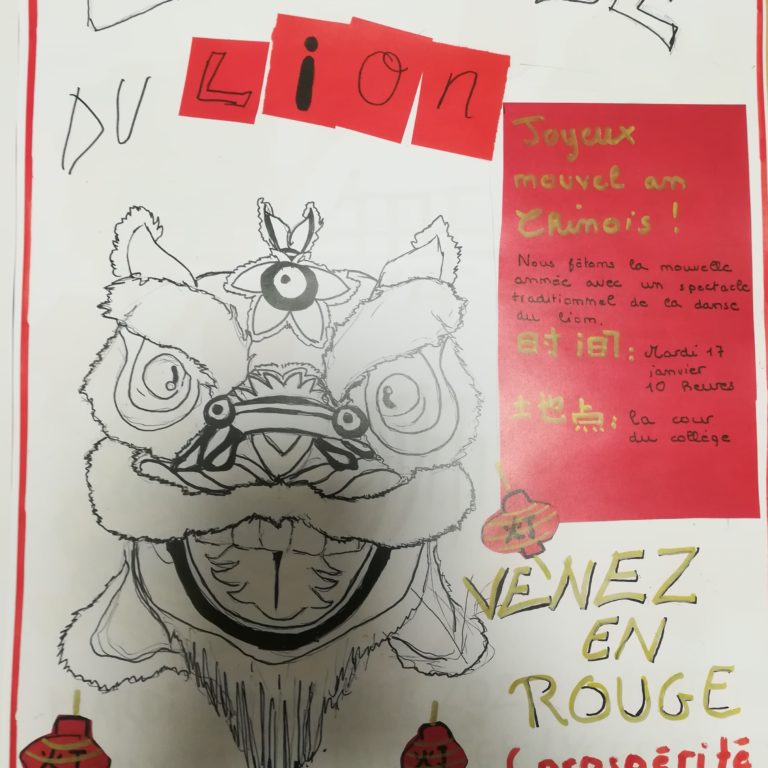 DU Lion
Joyeux
nouvel an
Chinois !
Nous fêtons la nouvelle
année avec un spectacle
traditionnel de la danse
du lion.
时间: Mardi 17
janvier
10 heures
地点: la cour
du collège
灯
VENEZ
EN
ROUGE
(prospérité
灯
灯